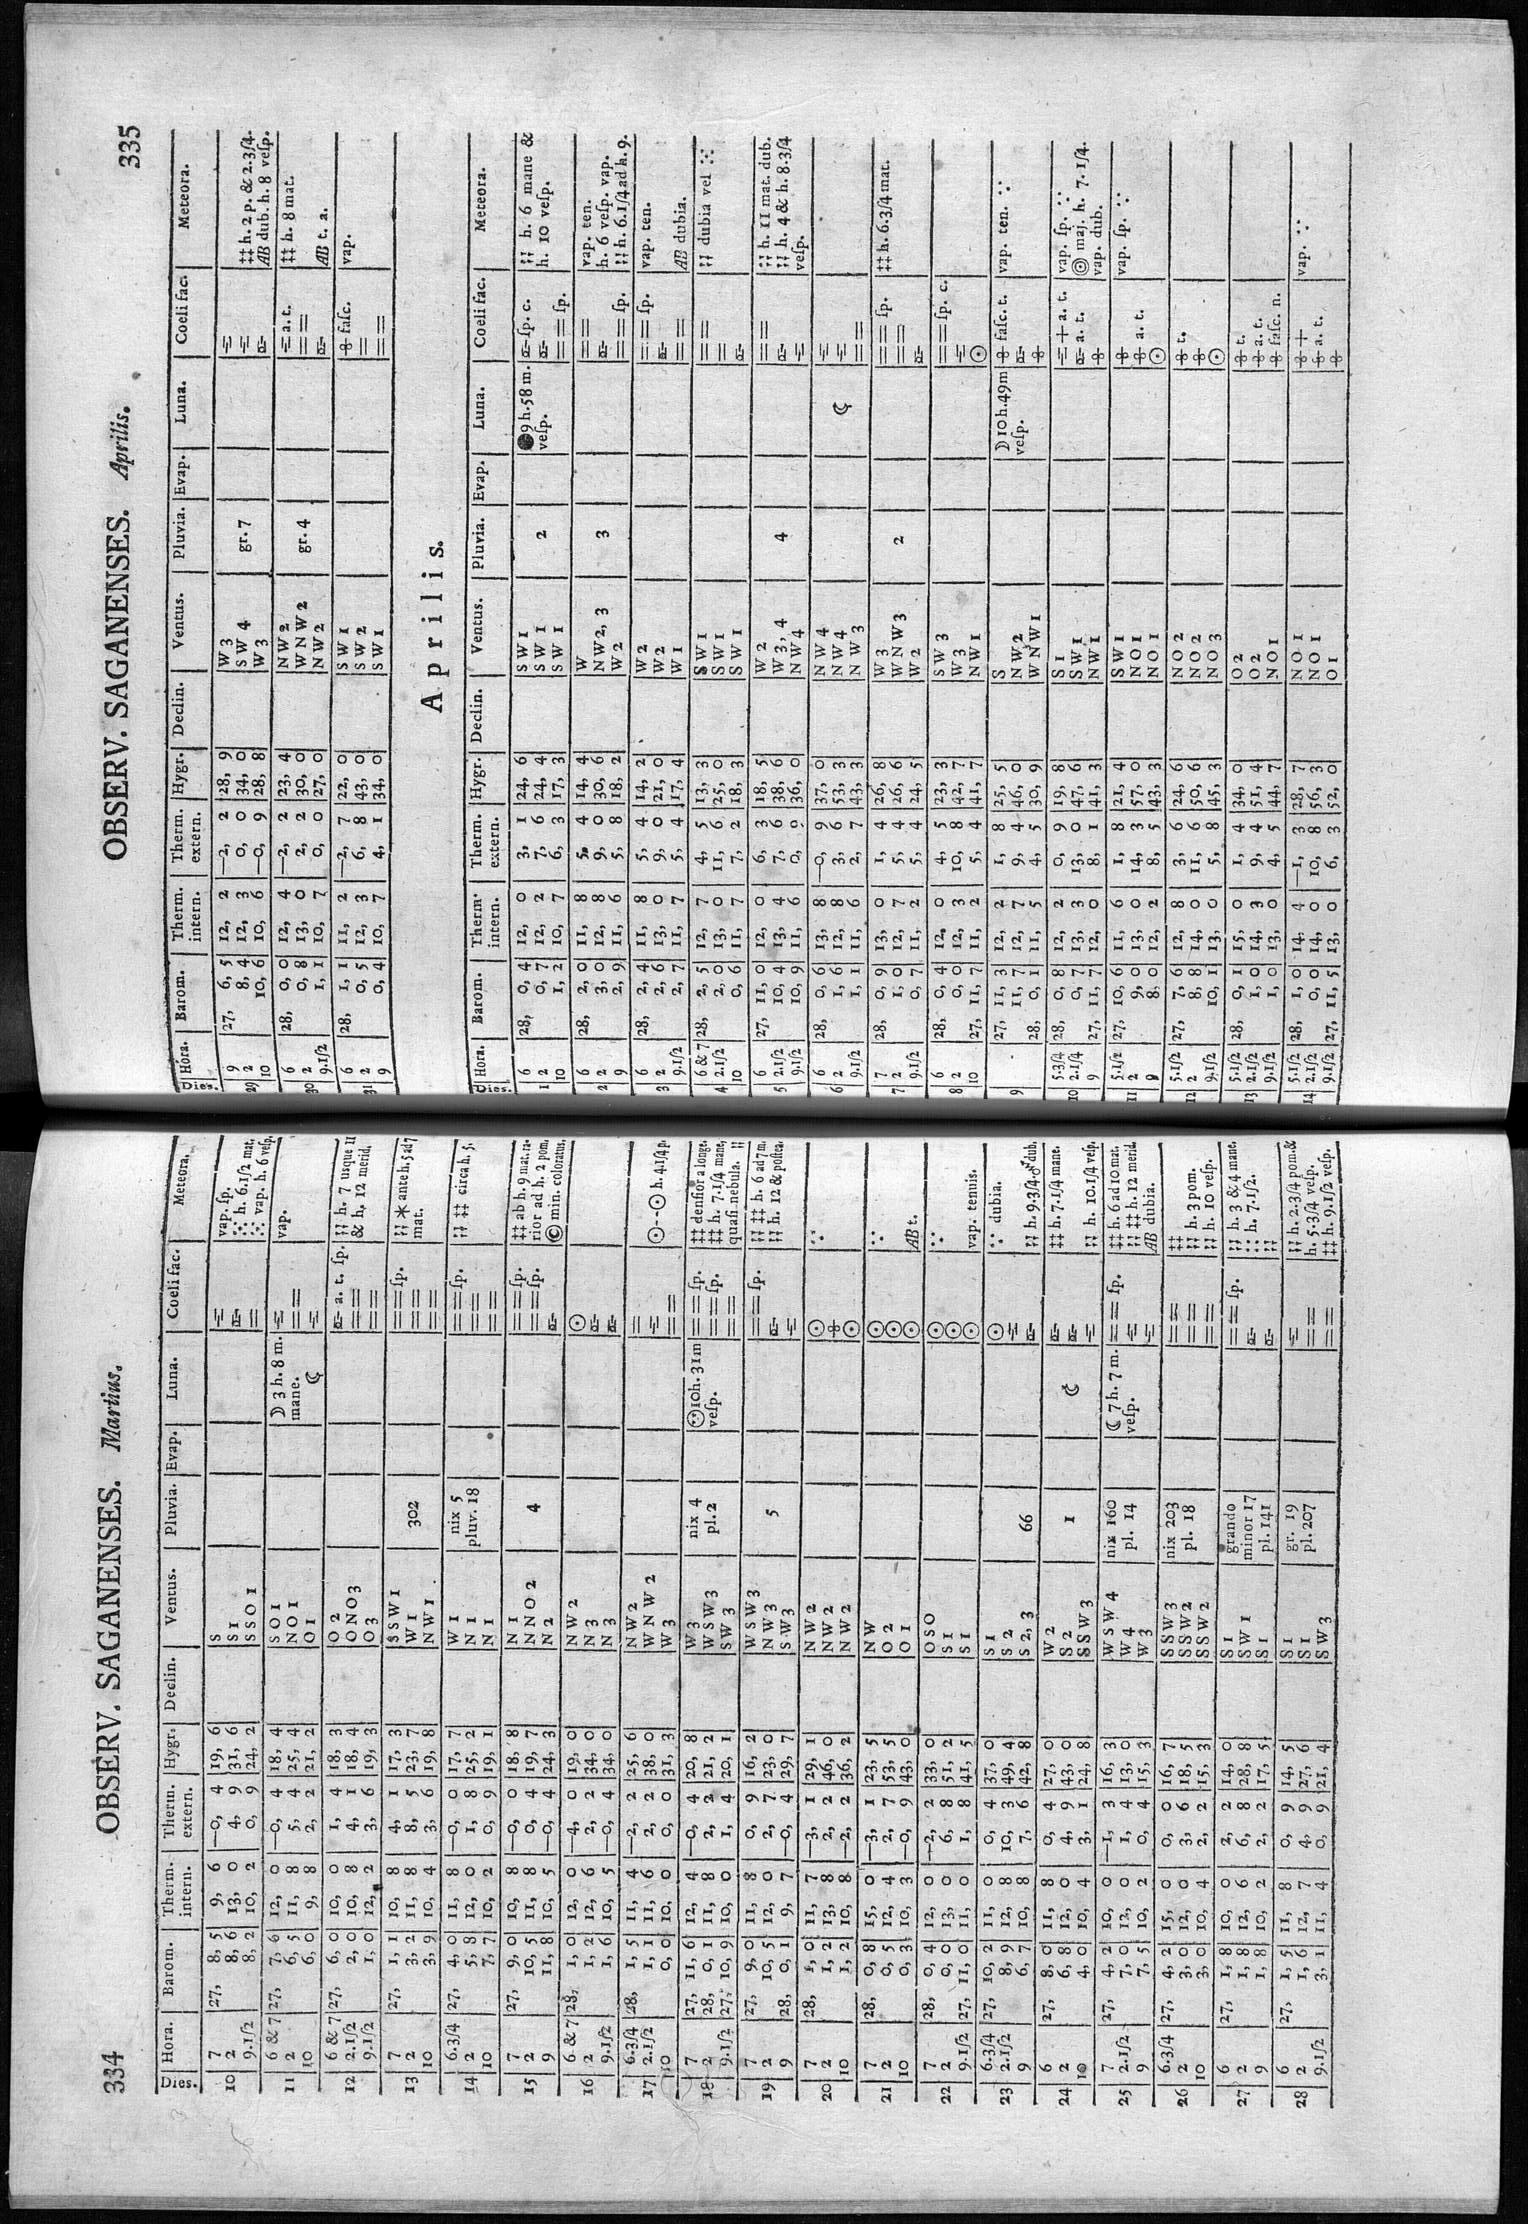 334 OBSERV. SAGANENSES. Martius.
Dies. Hora. Barom. Therm. intern. Therm. extern. Hygr. Declin. Ventus. Pluvia. Evap. Luna. Coeli fac. Meteora.
10 7 27, 8, 5 9, 6 —0, 4 19, 6 S vap. ſp.
2 8, 6 13, 0 4, 9 31, 6 S 1 ∵ h. 6.1/2 mat.
9.1/2 8, 2 10, 2 0, 9 24, 2 S S O 1 = ∵ vap. h. 6 veſp.
11 6 & 7 27, 7, 6 12, 0 —0, 4 18, 4 S O 1 ☽ 3 h. 8 m. vap.
2 6, 5 11, 8 5, 4 25, 4 N O 1 mane. = =
10 6, 0 9, 8 2, 2 21, 2 O 1
12 6 & 7 27, 6, 0 10, 0 1, 4 18, 3 O 2 a. t. ſp. h. 7 usque 11
2.1/2 2, 0 10, 8 4, 1 18, 4 O N O 3 = = & h. 12 merid.
9.1/2 1, 0 12, 2 3, 6 19, 3 O 3 = =
13 7 27, 1, 1 10, 8 4, 8 17, 3 S S W 1 302 = = ſp. ante h. 5 ad 7
2 3, 2 11, 8 8, 5 23, 7 W 1 = = mat.
10 3, 9 10, 4 3, 6 19, 8 N W 1 = =
14 6.3/4 27, 4, 0 11, 8 0, 1 17, 7 W 1 nix 5 = = ſp. circa h. 5.
2 5, 8 12, 0 1, 8 25, 2 N 1 pluv. 18 = =
10 7, 7 10, 2 0, 9 19, 1 N 1 = =
15 7 27, 9, 0 10, 8 —0, 0 18, 8 N 1 4 = = ſp. ‡‡ ab h. 9 mat. ra-
2 10, 5 11, 8 0, 4 19, 7 N N O 2 = = ſp. rior ad h. 2 pom.
9 11, 8 10, 5 —0, 4 24, 3 N 2 min. coloratus.
16 6 & 7 28, 1, 0 12, 0 —4, 0 19, 0 N W 2 ☉
2 1, 2 12, 6 2, 2 34, 0 N 3
9.1/2 1, 6 10, 5 —0, 4 34, 0 N 3
17 6.3/4 28, 1, 5 11, 4 —2, 2 25, 6 N W 2 = ☉--☉ h. 4.1/4 p.
2.1/2 1, 1 11, 6 2, 2 38, 0 W N W 2
10 0, 0 10, 0 0, 0 31, 3 W 3 = =
18 7 27, 11, 6 12, 4 —0, 4 20, 8 W 3 nix 4 10 h. 31 m = = ſp. ‡‡ denſior a longe.
2 28, 0, 1 11, 8 2, 2 21, 2 W S W 3 pl. 2 veſp. = = ſp. ‡‡ h. 7.1/4 mane,
9.1/2 27, 10, 9 10, 0 1, 4 20, 1 S W 3 = = quaſi nebula.
19 7 27, 9, 0 11, 8 0, 9 16, 2 W S W 3 5 = = ſp. h. 6 ad 7 m.
2 10, 5 12, 0 2, 7 23, 0 N W 3 h. 12 & poſtea.
9 28, 0, 1 9, 7 —0, 4 29, 7 S W 3
20 7 28, 1, 0 11, 7 —3, 1 29, 1 N W 2 ☉ ∵
2 1, 2 13, 8 2, 2 46, 0 N W 2
10 1, 2 10, 8 —2, 2 36, 2 N W 2 ☉
21 7 28, 0, 8 15, 0 —3, 1 23, 5 N W ☉ ∵
2 0, 5 12, 4 2, 7 53, 5 O 2 ☉
10 0, 3 10, 3 —0, 9 43, 0 O 1 ☉ AB t.
22 7 28, 0, 4 12, 0 —2, 2 33, 0 O S O ☉ ∵
2 0, 0 13, 0 6, 8 51, 2 S 1 ☉
9.1/2 27, 11, 0 11, 0 1, 8 41, 5 S 1 ☉ vap. tenuis.
23 6.3/4 27, 10, 2 11, 0 0, 4 37, 0 S 1 66 ☉ ∵ dubia.
2.1/2 8, 9 12, 8 10, 3 49, 4 S 2
9 6, 7 10, 8 7, 6 42, 8 S 2, 3 h. 9.3/4 dub.
24 6 27, 8, 0 11, 8 0, 4 27, 0 W 2 1 ‡‡ h. 7.1/4 mane.
2 6, 8 12, 0 4, 9 43, 0 S 2
10 4, 0 10, 4 3, 1 24, 8 S S W 3 h. 10.1/4 veſp.
25 7 27, 4, 2 10, 0 —1, 3 16, 3 W S W 4 nix 160 ☾ 7 h. 7 m. = = ſp. ‡‡ h. 6 ad 10 mat.
2.1/2 7, 0 12, 0 1, 4 13, 0 W 4 pl. 14 veſp. ‡‡ h. 12 merid.
9 7, 5 10, 2 0, 4 15, 3 W 3 AB dubia.
26 6.3/4 27, 4, 2 15, 0 0, 0 16, 7 S S W 3 nix 203 = = ‡‡
2 3, 0 12, 0 3, 6 18, 5 S S W 2 pl. 18 = = h. 3 pom.
10 3, 0 10, 4 2, 2 15, 3 S S W 2 = = h. 10 veſp.
27 6 27, 1, 8 10, 0 2, 2 14, 0 S 1 grando = = ſp. h. 3 & 4 mane.
2 1, 8 12, 6 6, 8 28, 8 S W 1 minor 17 h. 7.1/2.
9 1, 8 10, 2 2, 2 17, 5 S 1 pl. 141
28 6 27, 1, 5 11, 8 0, 9 14, 5 S 1 gr. 19 h. 2.3/4 pom. &
2 1, 6 12, 7 4, 9 27, 6 S 1 pl. 207 = = h. 5.3/4 veſp.
9.1/2 3, 1 11, 4 0, 9 21, 4 S W 3 = = ‡‡ h. 9.1/2 veſp.
OBSERV. SAGANENSES. Aprilis. 335
Dies. Hora. Barom. Therm. intern. Therm. extern. Hygr. Declin. Ventus. Pluvia. Evap. Luna. Coeli fac. Meteora.
29 9 27, 6, 5 12, 2 —2, 2 28, 9 W 3 gr. 7
2 8, 4 12, 3 0, 0 34, 0 S W 4 ‡‡ h. 2 p. & 2.3/4.
10 10, 6 10, 6 —0, 9 28, 8 W 3 AB dub. h. 8 veſp.
30 6 28, 0, 0 12, 4 —2, 2 23, 4 N W 2 gr. 4 a. t. ‡‡ h. 8 mat.
2 0, 8 13, 0 2, 2 30, 0 W N W 2 = =
9.1/2 1, 1 10, 7 0, 0 27, 0 N W 2 AB t. a.
31 6 28, 1, 1 11, 2 —2, 7 22, 0 S W 1 faſc. vap.
2 0, 5 12, 3 6, 8 43, 0 S W 2 =
9 0, 4 10, 7 4, 1 34, 0 S W 1 = =
Aprilis.
Dies. Hora. Barom. Therm. intern. Therm. extern. Hygr. Declin. Ventus. Pluvia. Evap. Luna. Coeli fac. Meteora.
1 6 28, 0, 4 12, 0 3, 1 24, 6 S W 1 2 9 h. 58 m. ſp. c. h. 6 mane &
2 0, 7 12, 2 7, 6 24, 4 S W 1 veſp. h. 10 veſp.
10 1, 2 10, 7 6, 3 17, 3 S W 1 = = ſp.
2 6 28, 2, 0 11, 8 5, 4 14, 4 W 3 = = vap. ten.
2 3, 0 12, 8 9, 0 30, 6 N W 2, 3 h. 6 veſp. vap.
9 2, 9 11, 6 5, 8 18, 2 W 2 = = ſp. h. 6.1/4 ad h. 9.
3 6 28, 2, 4 11, 8 5, 4 14, 2 W 2 = = ſp. vap. ten.
2 2, 6 13, 0 9, 0 21, 0 W 2
9.1/2 2, 7 11, 7 5, 4 17, 4 W 1 = = AB dubia.
4 6 & 7 28, 2, 5 12, 7 4, 5 13, 3 S W 1 = = dubia vel ∵
2.1/2 2, 0 13, 0 11, 6 25, 0 S W 1 = =
10 0, 6 11, 7 7, 2 18, 3 S W 1
5 6 27, 11, 0 12, 0 6, 3 18, 5 W 2 4 = = h. 11 mat. dub.
2.1/2 10, 4 13, 4 7, 6 38, 6 W 3, 4 h. 4 & h. 8.3/4
9.1/2 10, 9 11, 6 0, 0 36, 0 N W 4 veſp.
6 6 28, 0, 6 13, 8 —0, 9 37, 0 N W 4
2 1, 6 12, 8 3, 6 53, 3 N W 4
9.1/2 1, 1 11, 6 2, 7 43, 3 N W 3 = =
7 7 28, 0, 9 13, 0 1, 4 26, 8 W 3 2 = = ſp. ‡‡ h. 6.3/4 mat.
2 1, 0 12, 7 5, 4 26, 6 W N W 3 = =
9.1/2 0, 7 11, 2 5, 4 24, 5 W 2
8 6 28, 0, 4 12, 0 4, 5 23, 3 S W 3 = = ſp. c.
2 0, 0 12, 3 10, 8 42, 7 W 3
10 27, 11, 7 11, 2 5, 4 41, 7 N W 1 ☉
9 27, 11, 3 12, 2 1, 8 25, 5 S ☽ 10 h. 49 m faſc. t. vap. ten. ∵
11, 7 12, 7 9, 4 46, 0 N W 2 veſp.
28, 0, 1 11, 5 4, 5 30, 9 W N W 1
10 5.3/4 28, 0, 8 12, 2 0, 9 19, 8 S 1 + a. t. vap. ſp. ∵
2.1/4 0, 7 13, 3 13, 0 47, 6 S W 1 a. t. maj. h. 7. 1/4.
9 27, 11, 7 12, 0 8, 1 41, 3 N W 1 vap. dub.
11 5.1/2 27, 10, 6 11, 6 1, 8 21, 4 S W 1 vap. ſp. ∵
2 9, 0 13, 0 14, 3 57, 0 N O 1 a. t.
9 8, 0 12, 2 8, 5 43, 3 N O 1 ☉
12 5.1/2 27, 7, 6 12, 8 3, 6 24, 6 N O 2 t.
2 8, 8 14, 0 11, 6 50, 6 N O 2
9.1/2 10, 1 13, 0 5, 8 45, 3 N O 3 ☉
13 5.1/2 28, 0, 1 15, 0 1, 4 34, 0 O 2 t.
2.1/2 1, 0 14, 3 9, 4 51, 4 O 2 a. t.
9.1/2 1, 0 13, 0 4, 5 44, 7 N O 1 faſc. n.
14 5.1/2 28, 1, 0 14, 4 —1, 3 28, 7 N O 1 + vap. ∵
2.1/2 0, 0 14, 0 10, 8 56, 3 N O 1 a. t.
9.1/2 27, 11, 5 13, 0 6, 3 52, 0 O 1